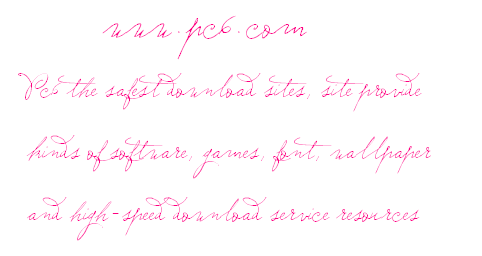 www.pc6.com
Pc6 the safest download sites, site provide
kinds of software, games, font, wallpaper
and high-speed download service resources